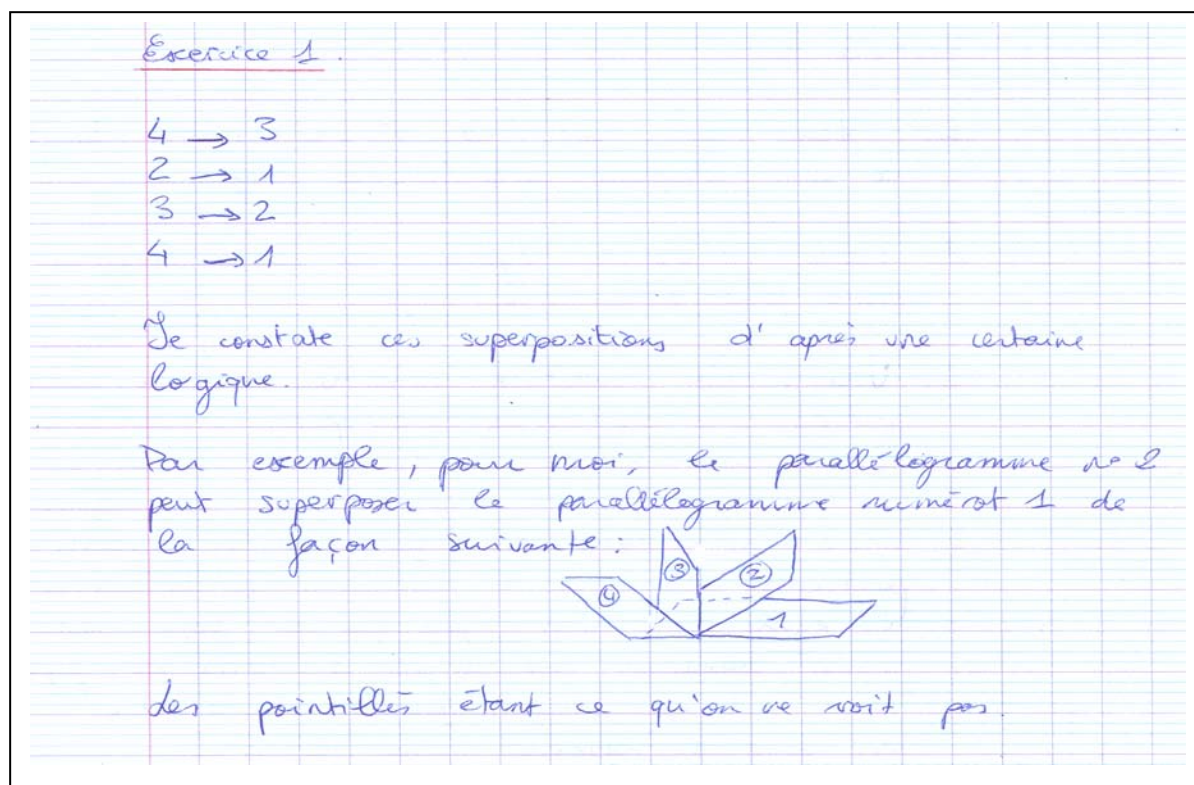 Exercice 1.
4 → 3
2 → 1
3 → 2
4 → 1
Je constate ces superpositions d'après une certaine
logique.
Par exemple, pour moi, le parallélogramme n° 2
peut superposer le parallélogramme numérot 1 de
la façon suivante :
3 2
4
1
Les pointillés étant ce qu'on ne voit pas.